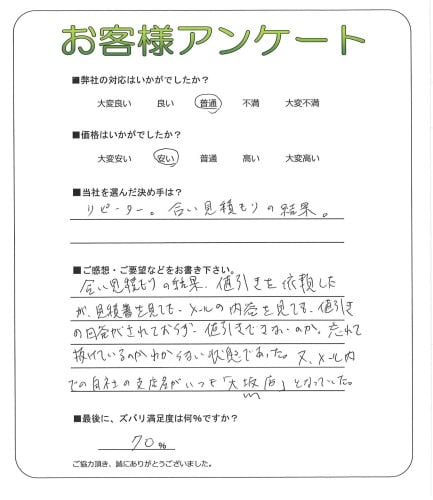 お客様アンケート
■弊社の対応はいかがでしたか？
大変良い 良い 普通 不満 大変不満
■価格はいかがでしたか？
大変安い 安い 普通 高い 大変高い
■当社を選んだ決め手は？
リピーター。合い見積もりの結果。
■ご感想・ご要望などをお書き下さい。
合い見積もりの結果、値引きを依頼した
が、見積書を見ても、メールの内容を見ても、値引き
の回答がされておらず、値引きできないのか、忘れて
抜けているのかわからない状態であった。又、メール内
での自社の支店名がいつも「大坂店」となっていた。
■最後に、ズバリ満足度は何％ですか？
70％
ご協力頂き、誠にありがとうございました。